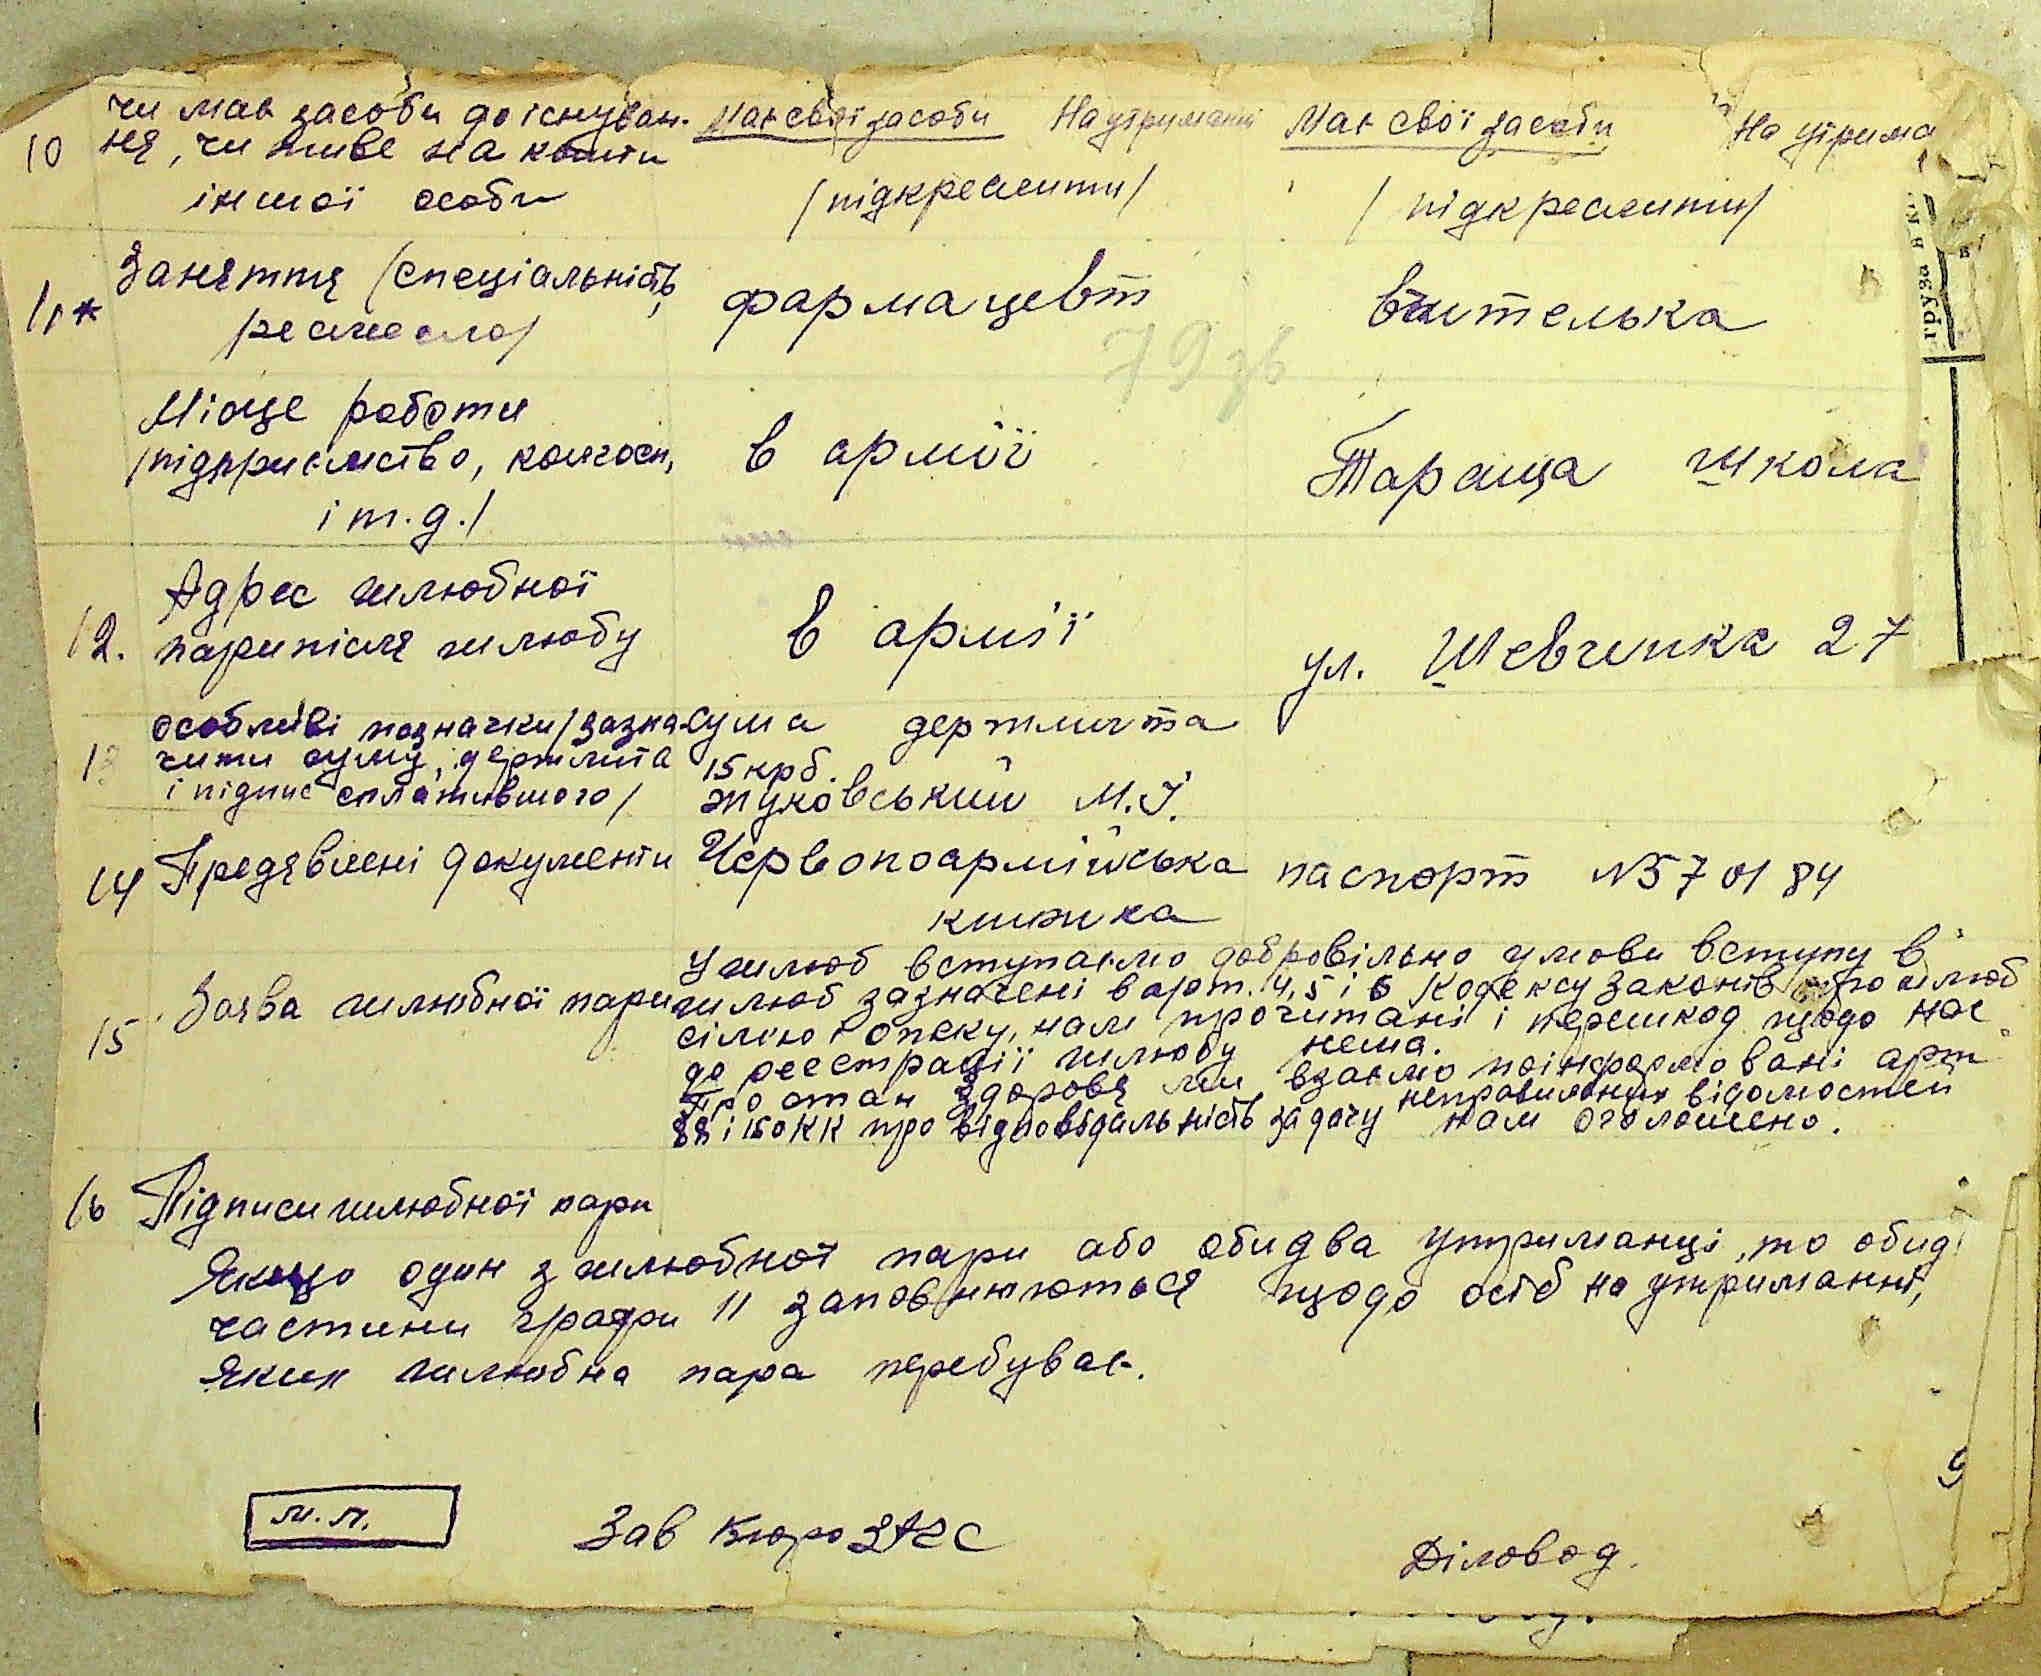 чи має засоби до існуван-
10 ня, чи живе на кошти
іншої особи
Має свої засоби На утриманні
/підкреслити/
Має свої засоби На утрима
/підкреслити/
11* Заняття (спеціальність,
ремесло)
фармацевт
вчителька
79 зв
Місце роботи
/підприємство, колгосп,
і т.д./
в армії
Тараща школа
Адрес шлюбної
12. пари після шлюбу
в армії
ул. Шевчинка 27
особливі позначки/зазна-
13 чити суму, держмита
і підпис сплатившого/
сума держмита
15 крб.
Жуковський М.І.
14 Предявлені документи
Червоноармійська
книжка
паспорт №570184
15 Заява шлюбної пари
У шлюб вступаємо добровільно умови вступу в
шлюб зазначені в арт. 4, 5 і 6 Кодексу законів про шлюб
сімю і опеку, нам прочитані і перешкод щодо нас
до реєстрації шлюбу нема.
Про стан здоровя ми взаємо поінформовані арт
88 і 160 КК про відповідальність за дачу неправильних відомостей
нам оголошено.
16 Підписи шлюбної пари
Якщо один з шлюбної пари або обидва утриманці, то обид
частини графи 11 заповнюються щодо осіб на утриманні,
яких шлюбна пара перебуває.
м.п.
Зав Бюро ЗАГС
Діловод.
груза в к